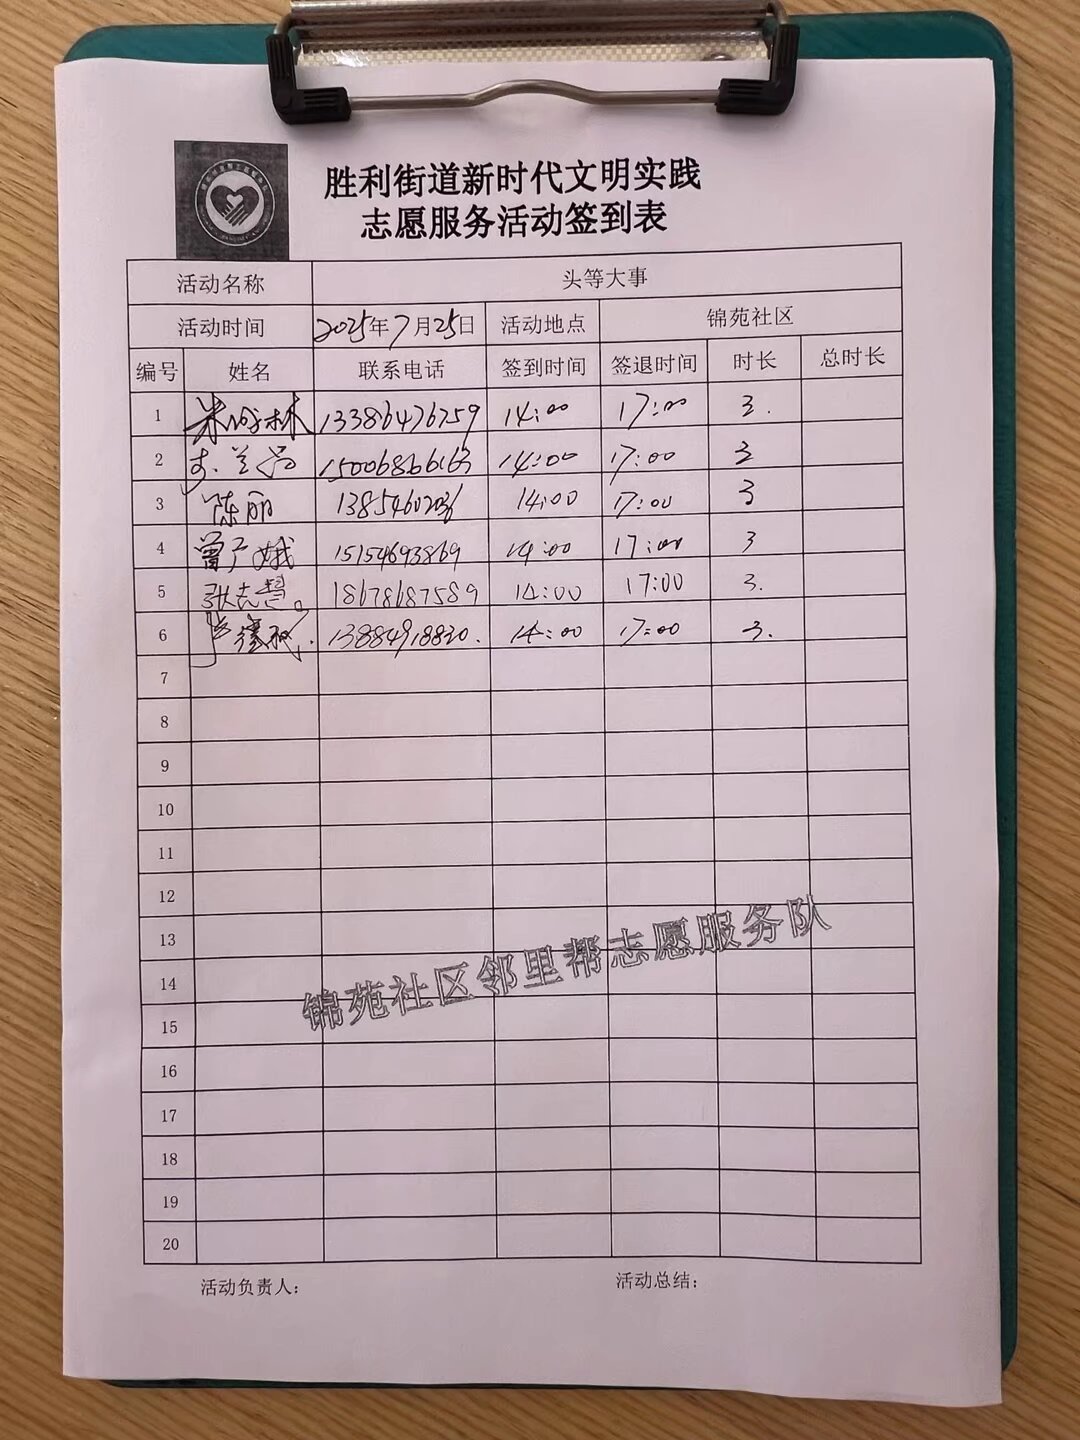 胜利街道新时代文明实践
志愿服务活动签到表
活动名称 头等大事
活动时间 2025年7月25日 活动地点 锦苑社区
编号 姓名 联系电话 签到时间 签退时间 时长 总时长
1 林 13386476759 14:00 17:00 3.
2 15006866163 14:00 17:00 3
3 陈丽 13854602036 14:00 17:00 3
4 曾广娥 15154693869 14:00 17:00 3
5 张志慧。 18678687589 14:00 17:00 3.
6 13884918830. 14:00 17:00 3.
7
8
9
10
11
12
13
14
15
16
17
18
19
20
锦苑社区邻里帮志愿服务队
活动负责人: 活动总结: